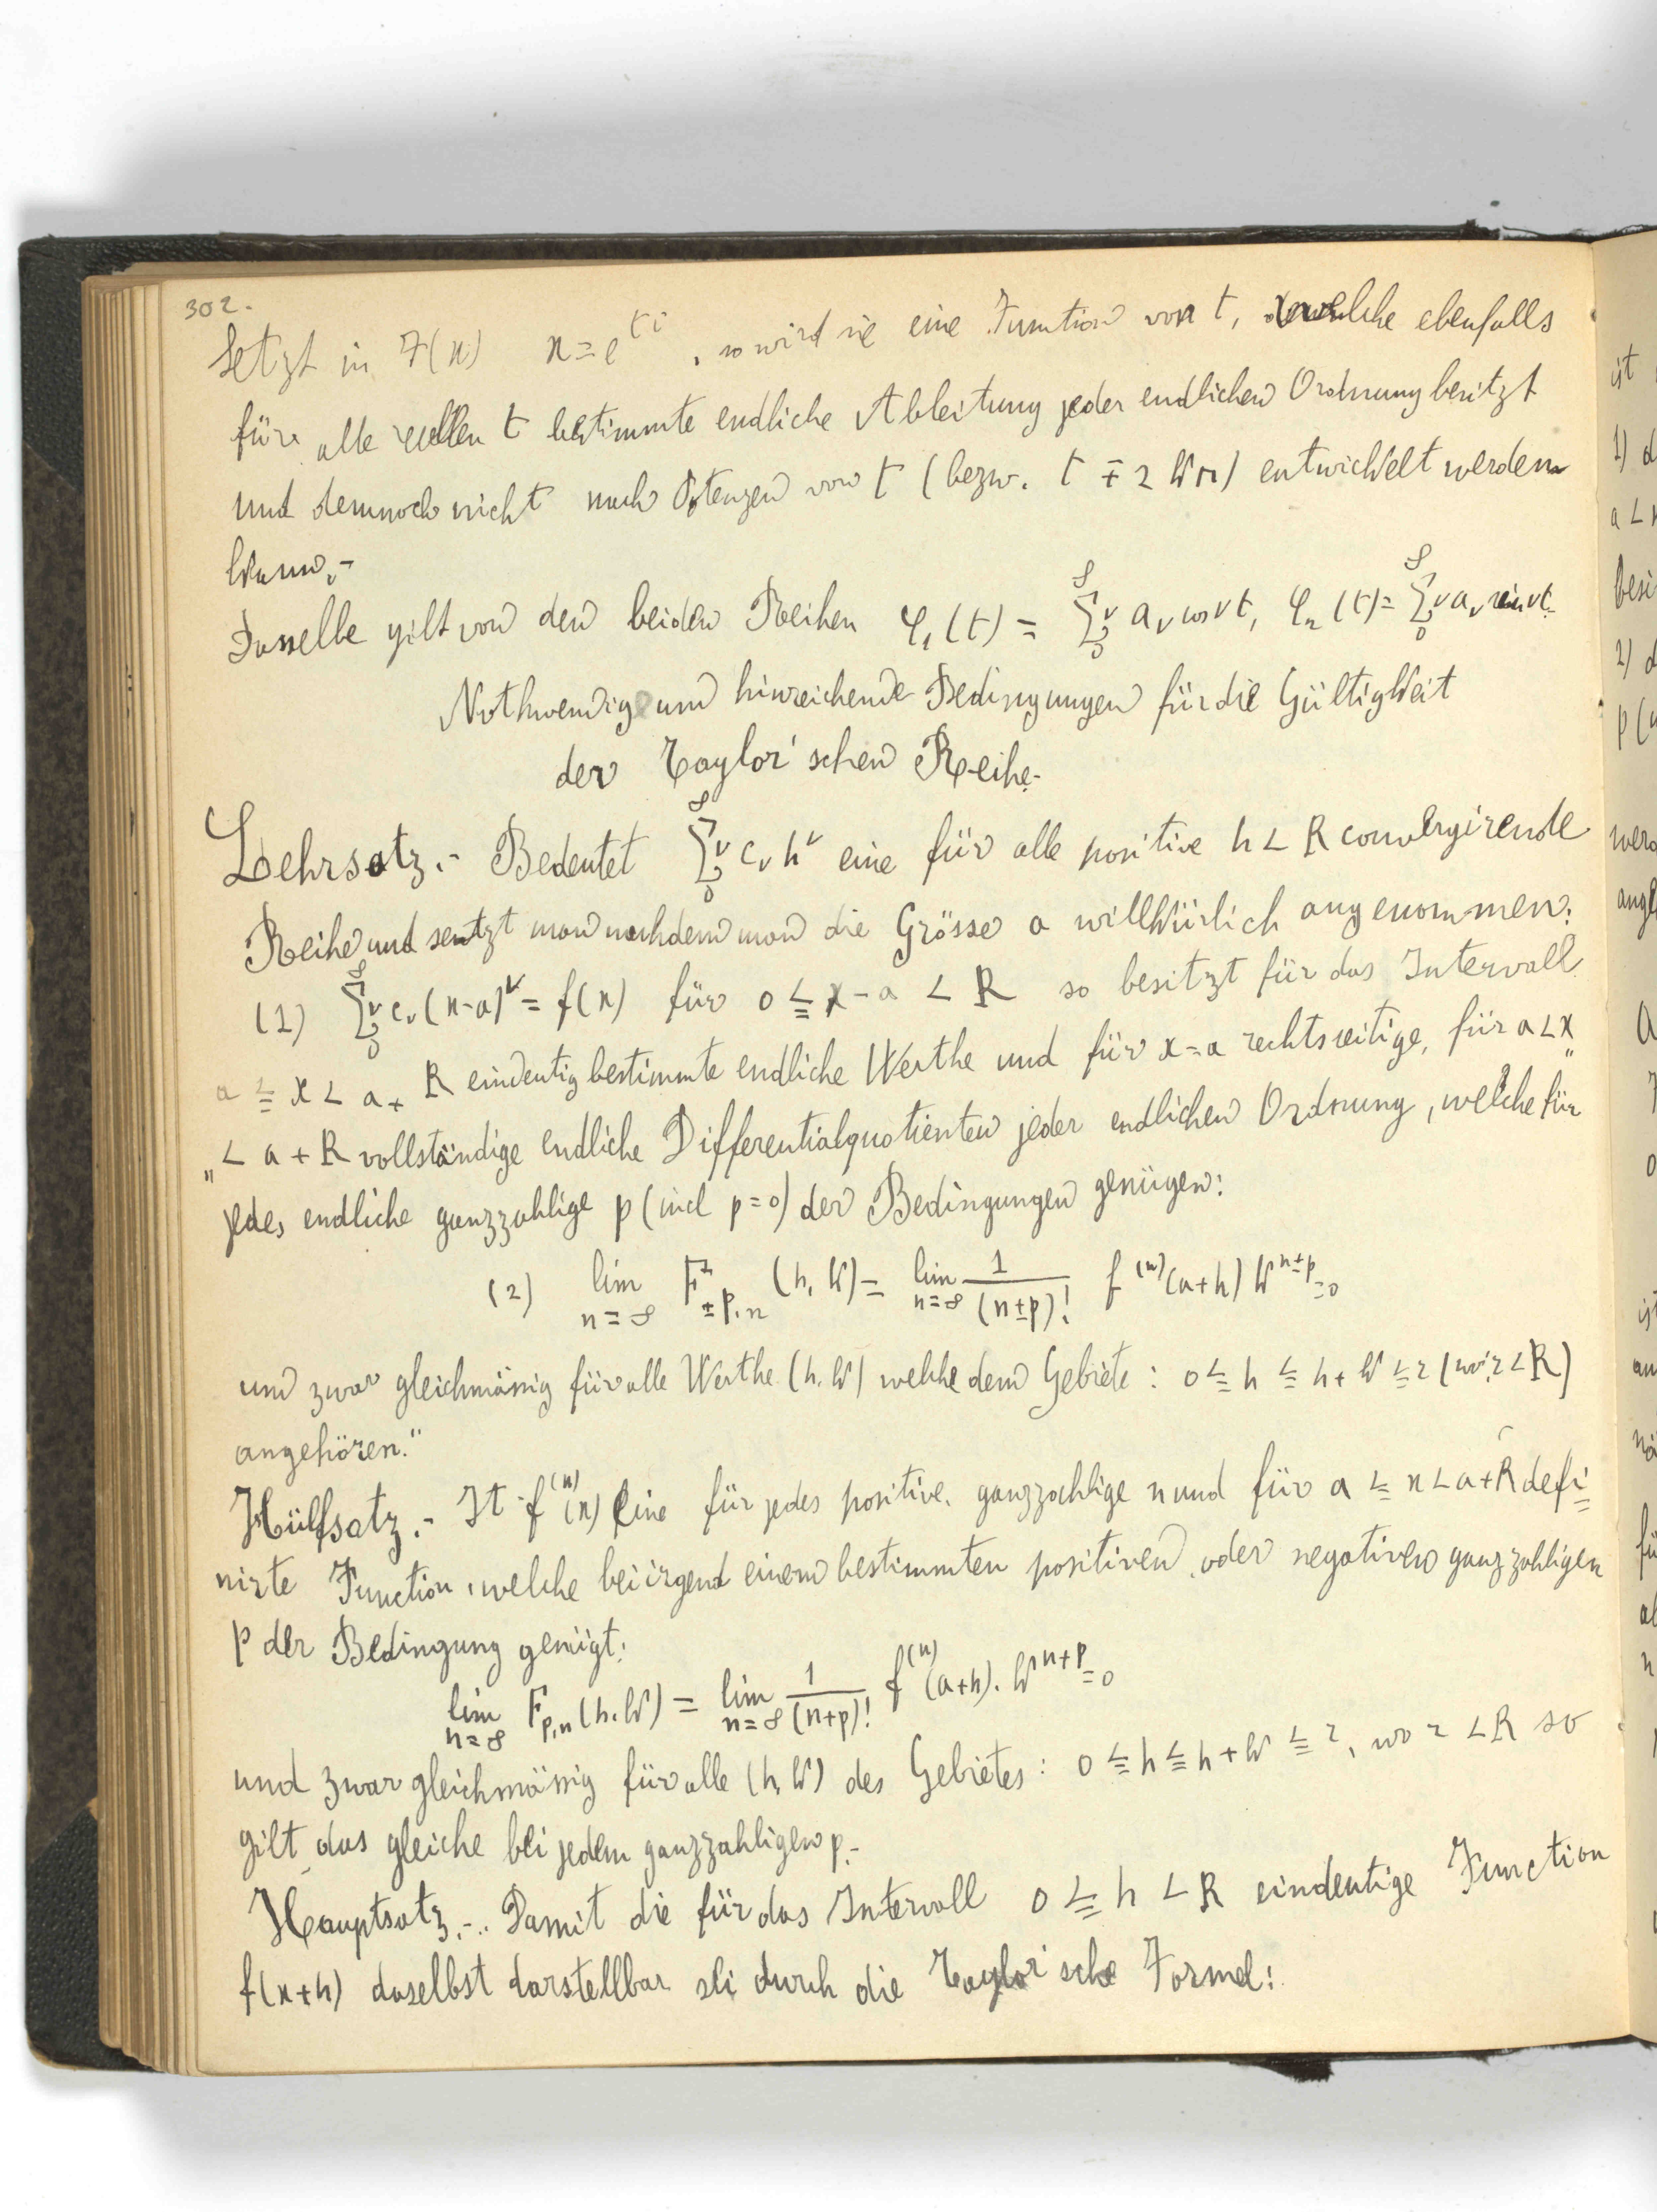 302.
Setzt in F(x) x = e^{ti}, so wird sie eine Function von t, welche ebenfalls
für alle reellen t bestimmte endliche Ableitung jeder endlichen Ordnung besitzt
und dennoch nicht nach Potenzen von t (bezw. t ∓ 2kπ) entwickelt werden
kann.-
Dasselbe gilt von den beiden Reihen φ₁(t) = ∑₀^∞ ν a_ν cos νt, φ₂(t) = ∑₀^∞ ν a_ν sin νt.
Nothwendige und hinreichende Bedingungen für die Gültigkeit
der Taylor'schen Reihe.-
Lehrsatz.- Bedeutet ∑₀^∞ ν c_ν h^ν eine für alle positive h < R convergirende
Reihe und setzt man nachdem man die Grösse a willkürlich angenommen:
(1) ∑₀^∞ ν c_ν (x-a)^ν = f(x) für 0 ≦ x - a < R so besitzt für das Intervall
a ≦ x < a + R eindeutig bestimmte endliche Werthe und für x = a rechtsseitige, für a < x "
" < a + R vollständige endliche Differentialquotienten jeder endlichen Ordnung, welche für
jedes endliche ganzzahlige p (incl p = 0) der Bedingungen genügen:
(2) lim_{n=∞} F_{±p,n} (h, k) = lim_{n=∞} 1/(n±p)! f^{(n)}(a+h) k^{n±p} = 0
und zwar gleichmässig für alle Werthe (h, k) welche dem Gebiete: 0 ≦ h ≦ h + k ≦ r (wo r < R)
angehören."
Hülfsatz.- Ist f^{(n)}(x) eine für jedes positive, ganzzahlige n und für a ≦ x < a + R defi=
nirte Function, welche bei irgend einem bestimmten positiven oder negativen ganzzahligen
p der Bedingung genügt:
lim_{n=∞} F_{p,n}(h, k) = lim_{n=∞} 1/(n+p)! f^{(n)}(a+h). k^{n+p} = 0
und zwar gleichmässig für alle (h, k) des Gebietes: 0 ≦ h ≦ h + k ≦ r, wo r < R so
gilt das gleiche bei jedem ganzzahligen p.-
Hauptsatz.- Damit die für das Intervall 0 ≦ h < R eindeutige Function
f(x+h) daselbst darstellbar sei durch die Taylor'sche Formel: